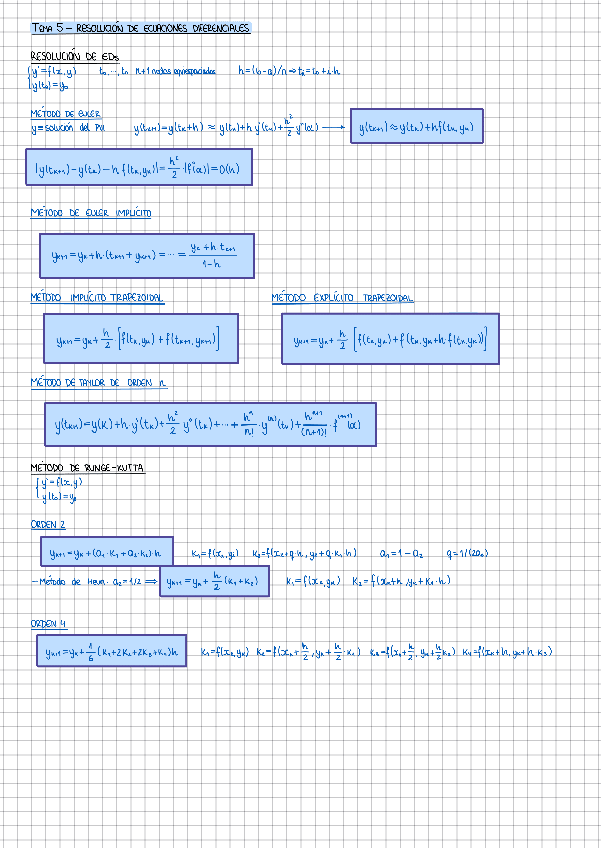 TEMA 5 – RESOLUCIÓN DE ECUACIONES DIFERENCIALES
RESOLUCIÓN DE EDs
{ y' = f(x, y)   t₀, ..., tₙ n+1 nodos equiespaciados   h = (b-a)/n ⇒ tₖ = t₀ + k·h
y(t₀) = y₀
MÉTODO DE EULER
y ≡ solución del PVI   y(tₖ₊₁) = y(tₖ+h) ≈ y(tₖ) + h y'(tₖ) + h²/2 y''(α) ⟶ y(tₖ₊₁) ≈ y(tₖ) + h f(tₖ, yₖ)
|y(tₖ₊₁) – y(tₖ) – h f(tₖ, yₖ)| = h²/2 · |f''(α)| = O(h)
MÉTODO DE EULER IMPLÍCITO
yₖ₊₁ = yₖ + h·(tₖ₊₁ + yₖ₊₁) = ... = (yₖ + h tₖ₊₁)/(1-h)
MÉTODO IMPLÍCITO TRAPEZOIDAL   MÉTODO EXPLÍCITO TRAPEZOIDAL
yₖ₊₁ = yₖ + h/2 · [f(tₖ, yₖ) + f(tₖ₊₁, yₖ₊₁)]   yₖ₊₁ = yₖ + h/2 [f(tₖ, yₖ) + f(tₖ, yₖ + h·f(tₖ, yₖ))]
MÉTODO DE TAYLOR DE ORDEN n
y(tₖ₊₁) = y(k) + h·y'(tₖ) + h²/2 y''(tₖ) + ... + hⁿ/n! · y⁽ⁿ⁾(tₖ) + hⁿ⁺¹/(n+1)! · f⁽ⁿ⁺¹⁾(α)
MÉTODO DE RUNGE-KUTTA
{ y' = f(x, y)
y(t₀) = y₀
ORDEN 2
yₖ₊₁ = yₖ + (a₁·K₁ + a₂·K₂)·h   K₁ = f(xₖ, yₖ)   K₂ = f(xₖ + q·h, yₖ + q·K₁·h)   a₁ = 1 – a₂   q = 1/(2a₂)
– Método de Heun. a₂ = 1/2 ⟹ yₖ₊₁ = yₖ + h/2 (K₁ + K₂)   K₁ = f(xₖ, yₖ)   K₂ = f(xₖ + h, yₖ + K₁·h)
ORDEN 4
yₖ₊₁ = yₖ + 1/6 (K₁ + 2K₂ + 2K₃ + K₄)h   K₁ = f(xₖ, yₖ)   K₂ = f(xₖ + h/2, yₖ + h/2 · K₁)   K₃ = f(xₖ + h/2, yₖ + h/2 K₂)   K₄ = f(xₖ + h, yₖ + h K₃)